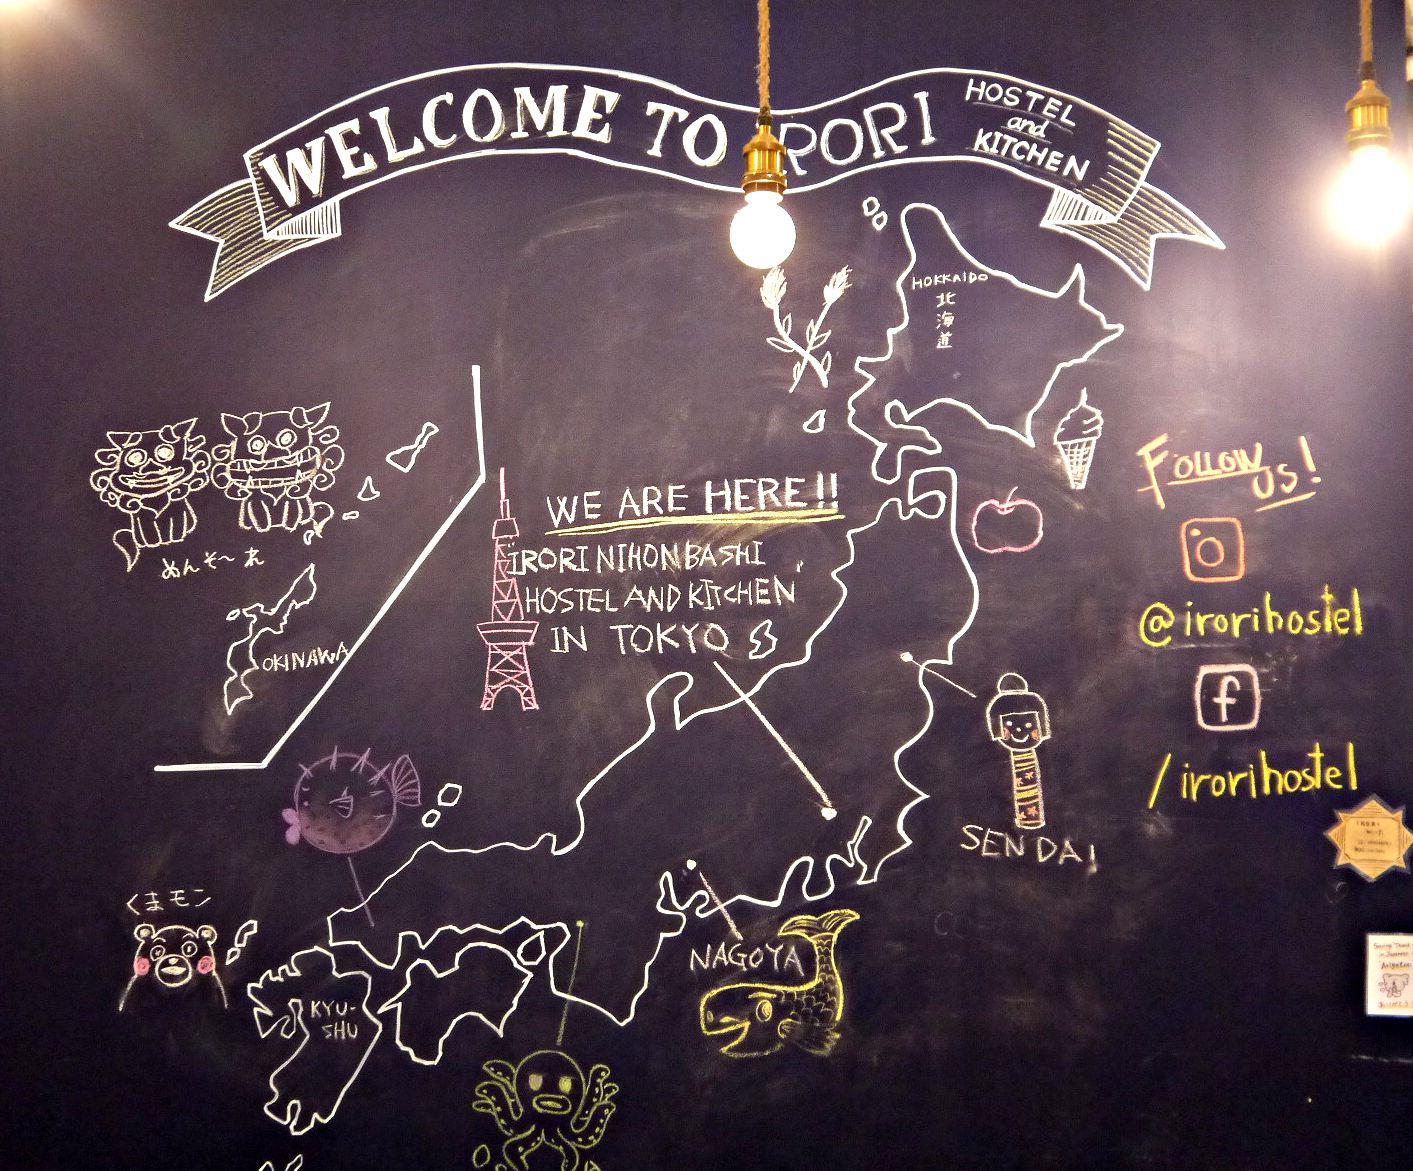 WELCOME TO IRORI HOSTEL and KITCHEN
HOKKAIDO
北海道
Follow us!
WE ARE HERE!!
"IRORI NIHONBASHI
HOSTEL AND KITCHEN"
IN TOKYO
めんそ〜れ
@irorihostel
OKINAWA
f
/irorihostel
SENDAI
くまモン
NAGOYA
KYU-
SHU